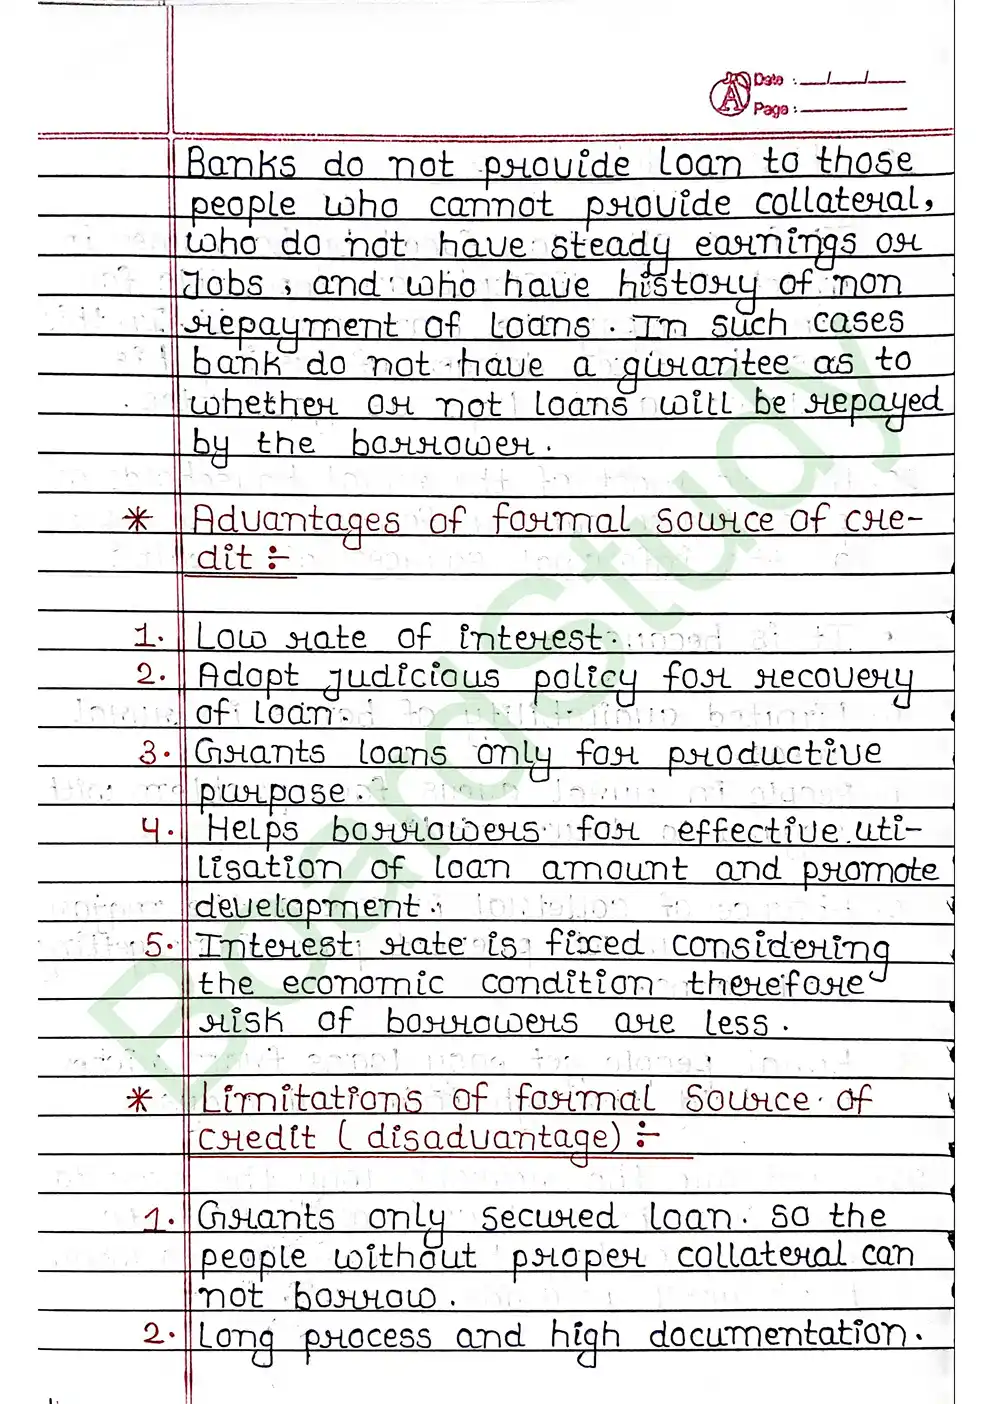 Date : __/__/__
Page : ________
Banks do not provide loan to those
people who cannot provide collateral,
who do not have steady earnings or
Jobs, and who have history of non
repayment of loans. In such cases
bank do not have a gurantee as to
whether or not loans will be repayed
by the borrower.
* Advantages of formal source of cre-
dit :-
1. Low rate of interest.
2. Adopt judicious policy for recovery
of loan.
3. Grants loans only for productive
purpose.
4. Helps borrowers for effective uti-
lisation of loan amount and promote
development.
5. Interest rate is fixed considering
the economic condition therefore
risk of borrowers are less.
* Limitations of formal source of
credit (disadvantage) :-
1. Grants only secured loan. so the
people without proper collateral can
not borrow.
2. Long process and high documentation.
BoardStudy